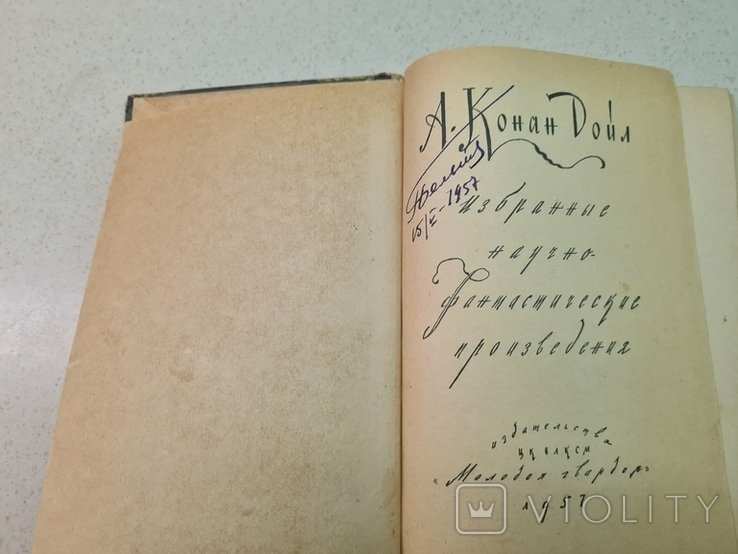 А. Конан Дойл
15/VI-1957
Избранные
научно-
фантастические
произведения
издательства
ЦК ВЛКСМ
"Молодая гвардия"
1957
VIOLITY